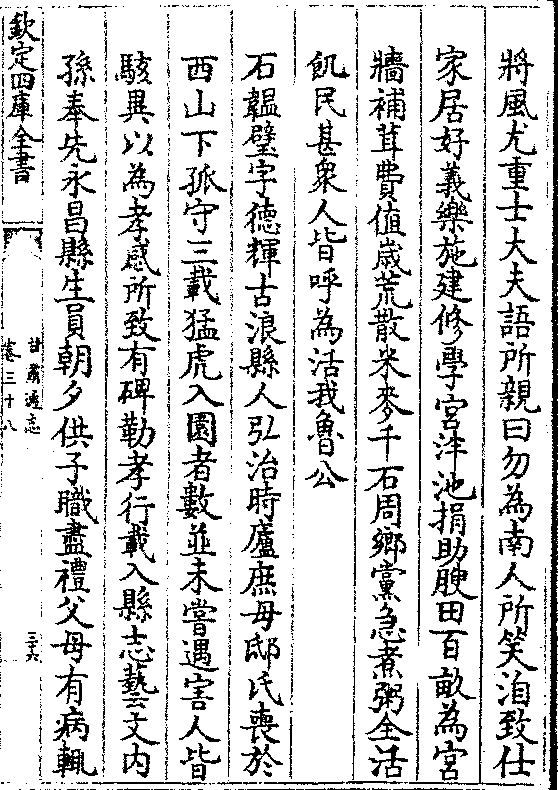 將風尤重士大夫語所親曰勿為南人所笑洎致仕
家居好義樂施建修學宫泮池捐助腴田百畝為宫
牆補葺費值嵗荒散米麥千石周鄉黨急煮粥全活
飢民甚衆人皆呼為活我魯公
石韞璧字徳輝古浪縣人弘治時廬庶母邸氏喪於
西山下孤守三載猛虎入園者數並未嘗遇害人皆
駭異以為孝感所致有碑勒孝行載入縣志藝文内
孫奉先永昌縣生員朝夕供子職盡禮父母有病輒
欽定四庫全書
甘肅通志
卷三十八
三六